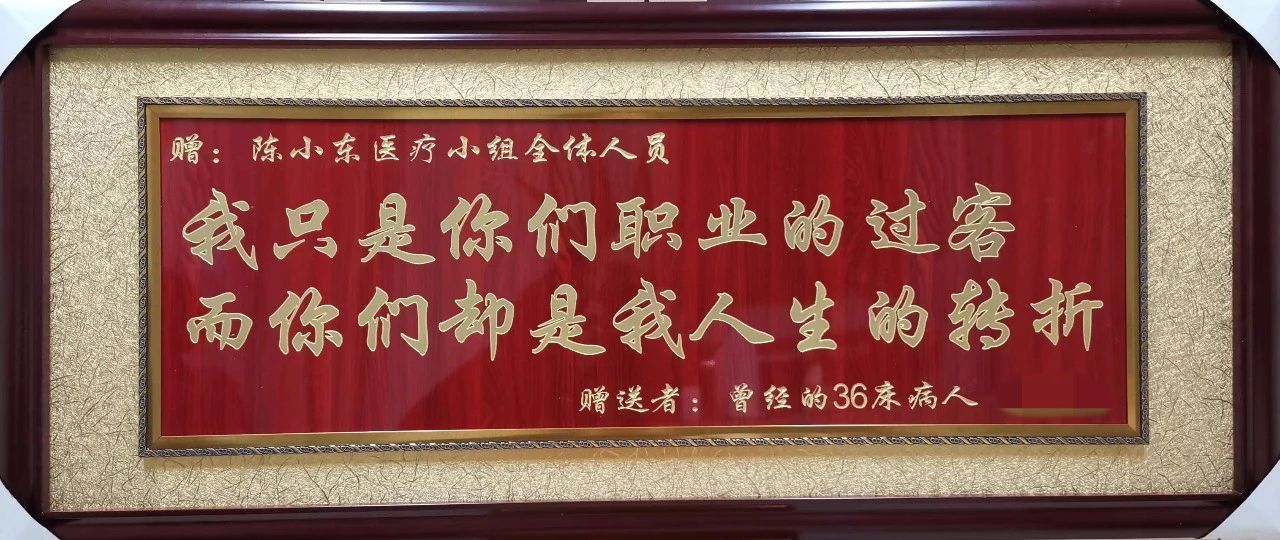 赠：陈小东医疗小组全体人员
我只是你们职业的过客
而你们却是我人生的转折
赠送者：曾经的36床病人